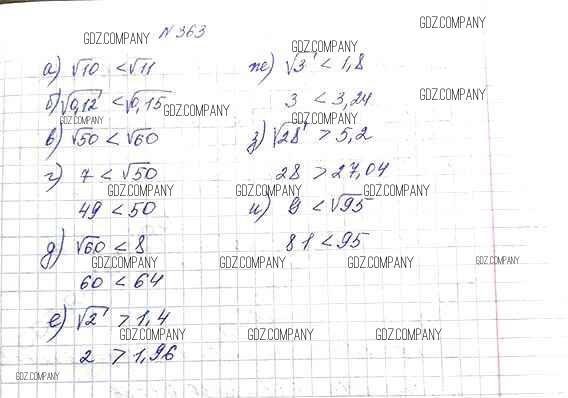 GDZ.COMPANY
GDZ.COMPANY № 363
GDZ.COMPANY
а) √10 < √11
ж) √3 < 1,8
б) √0,12 < √0,15
GDZ.COMPANY
3 < 3,24
GDZ.COMPANY
GDZ.COMPANY
GDZ.COMPANY
в) √50 < √60
з) √28 > 5,2
г) 7 < √50
28 > 27,04
GDZ.COMPANY
GDZ.COMPANY
GDZ.COMPANY
49 < 50
и) 9 < √95
д) √60 < 8
81 < 95
GDZ.COMPANY
GDZ.COMPANY
GDZ.COMPANY
GDZ.COMPANY
60 < 64
е) √2 > 1,4
GDZ.COMPANY
GDZ.COMPANY
GDZ.COMPANY
2 > 1,96
GDZ.COMPANY